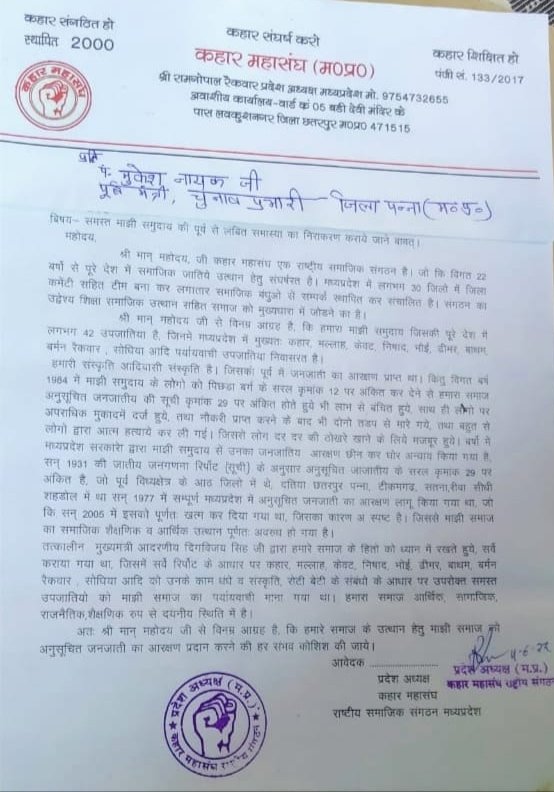 कहार संगठित हो
स्थापित 2000
कहार संघर्ष करो
कहार महासंघ (म0प्र0)
श्री रामगोपाल रैकवार प्रदेश अध्यक्ष मध्यप्रदेश मो. 9754732655
अवासीय कार्यालय-वार्ड क्रं 05 बड़ी देवी मंदिर के
पास लवकुशनगर जिला छतरपुर म0प्र0 471515
कहार शिक्षित हो
पंजी सं. 133/2017
कहार महासंघ
प्रति
पं. मुकेश नायक जी
पूर्व मंत्री, चुनाव प्रभारी जिला पन्ना (म०प्र०)
विषय- समस्त माझी समुदाय की पूर्व से लंबित समास्या का निराकरण कराये जाने बावत्।
महोदय,
श्री मान् महोदय, जी कहार महासंघ एक राष्ट्रीय समाजिक संगठन है। जो कि विगत 22
बर्षो से पूरे देश में समाजिक जातिये उत्थान हेतु संर्घषरत है। मध्यप्रदेश में लगभग 30 जिलो में जिला
कमेटी सहित टीम बना कर लगातार समाजिक बंधुओ से सम्पर्क स्थापित कर संचालित है। संगठन का
उद्वेश्य शिक्षा समाजिक उत्थान सहित समाज को मुख्यधारा में जोडने का है।
श्री मान् महोदय जी से विनम्र आग्रह है, कि हमारा माझी समुदाय जिसकी पूरे देश में
लगभग 42 उपजातिया है, जिनमे मध्यप्रदेश में मुख्यतः कहार, मल्लाह, केवट, निषाद, भोई, ढीमर, बाथम,
बर्मन रैकवार , सोंधिया आदि पर्यायवाची उपजातिया निवासरत है।
हमारी संस्कृति आदिवासी संस्कृति है। जिसका पूर्व में जनजाती का आरक्षण प्राप्त था। किंतु विगत बर्ष
1984 में माझी समुदाय के लोगो को पिछडा बर्ग के सरल क्रमांक 12 पर अंकित कर देने से हमारा समाज
अनुसूचित जनजातीय की सूची क्रमांक 29 पर अंकित होते हुये भी लाभ से बंचित हुये, साथ ही लोगो पर
अपराधिक मुकादमें दर्ज हुये, तथा नौकरी प्राप्त करने के बाद भी दोनो तडप से मारे गये, तथा बहुत से
लोगो द्वारा आत्म हत्याये कर ली गई। जिससे लोग दर दर की ठोखरे खाने के लिये मजबूर हुये। बर्षो में
मध्यप्रदेश सरकारो द्वारा माझी समुदाय से उनका जनजातिय आरक्षण छीन कर घोर अन्याय किया गया है,
सन् 1931 की जातीय जनगणना रिर्पोट (सूची) के अनुसार अनुसूचित जाजातीय के सरल क्रमांक 29 पर
अंकित है, जो पूर्व विंध्यक्षेत्र के आठ जिलो में थे, दतिया छतरपुर पन्ना, टीकमगढ, सतना,रीवा सीधी
शहडोल में था सन् 1977 में सम्पूर्ण मध्यप्रदेश में अनुसूचित जनजाती का आरक्षण लागू किया गया था, जो
कि सन् 2005 में इसको पूर्णतः खत्म कर दिया गया था, जिसका कारण अ स्पष्ट है। जिससे माझी समाज
का समाजिक शैक्षणिक व आर्थिक उत्थान पूर्णतः अवरूध हो गया है।
तत्कालीन मुख्यमंत्री आदरणीय दिगविजय सिंह जी द्वारा हमारे समाज के हितो को ध्यान में रखते हुये, सर्वे
कराया गया था, जिसमें सर्वे रिर्पोट के आधार पर कहार, मल्लाह, केवट, निषाद, भोई, ढीमर, बाथम, बर्मन
रैकवार , सोंधिया आदि को उनके काम धंधे व संस्कृति, रोटी बेटी के संबंधो के आधार पर उपरोक्त समस्त
उपजातियो को माझी समाज का पर्यायवाची माना गया था। हमारा समाज आर्थिक, सामाजिक,
राजनैतिक,शैक्षणिक रुप से दयनीय स्थिति में है।
अतः श्री मान् महोदय जी से विनम्र आग्रह है, कि हमारे समाज के उत्थान हेतु माझी समाज को
अनुसूचित जनजाती का आरक्षण प्रदान करने की हर संभव कोशिश की जाये।
आवेदक ..................
प्रदेश अध्यक्ष (म.प्र.)
कहार महासंघ राष्ट्रीय संगठन
प्रदेश अध्यक्ष
कहार महासंघ
राष्टीय समाजिक संगठन मध्यप्रदेश
प्रदेश अध्यक्ष (म.प्र.)
कहार महासंघ राष्ट्रीय संगठन